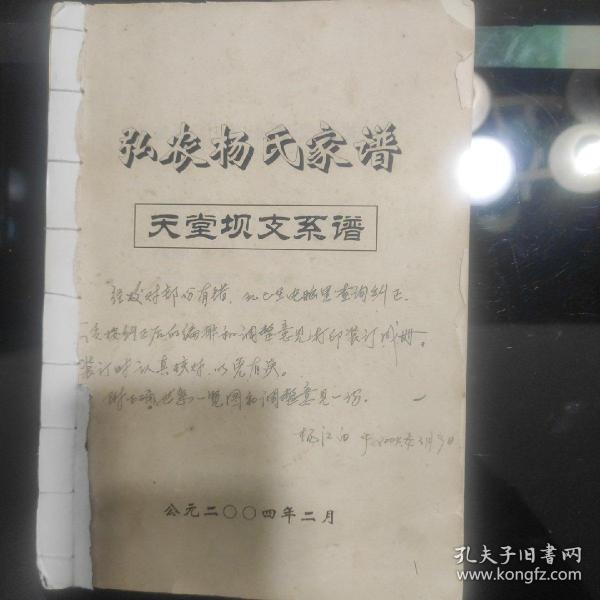 弘农杨氏家谱
天堂坝支系谱
经校对部份有错，现已在电脑里查询纠正。
请按纠正后的编排和调整意见打印装订成册。
装订时认真核对，以免有误。
附世系一览图和调整意见一份。
杨江
公元二〇〇四年二月
孔夫子旧书网
www.kongfz.com